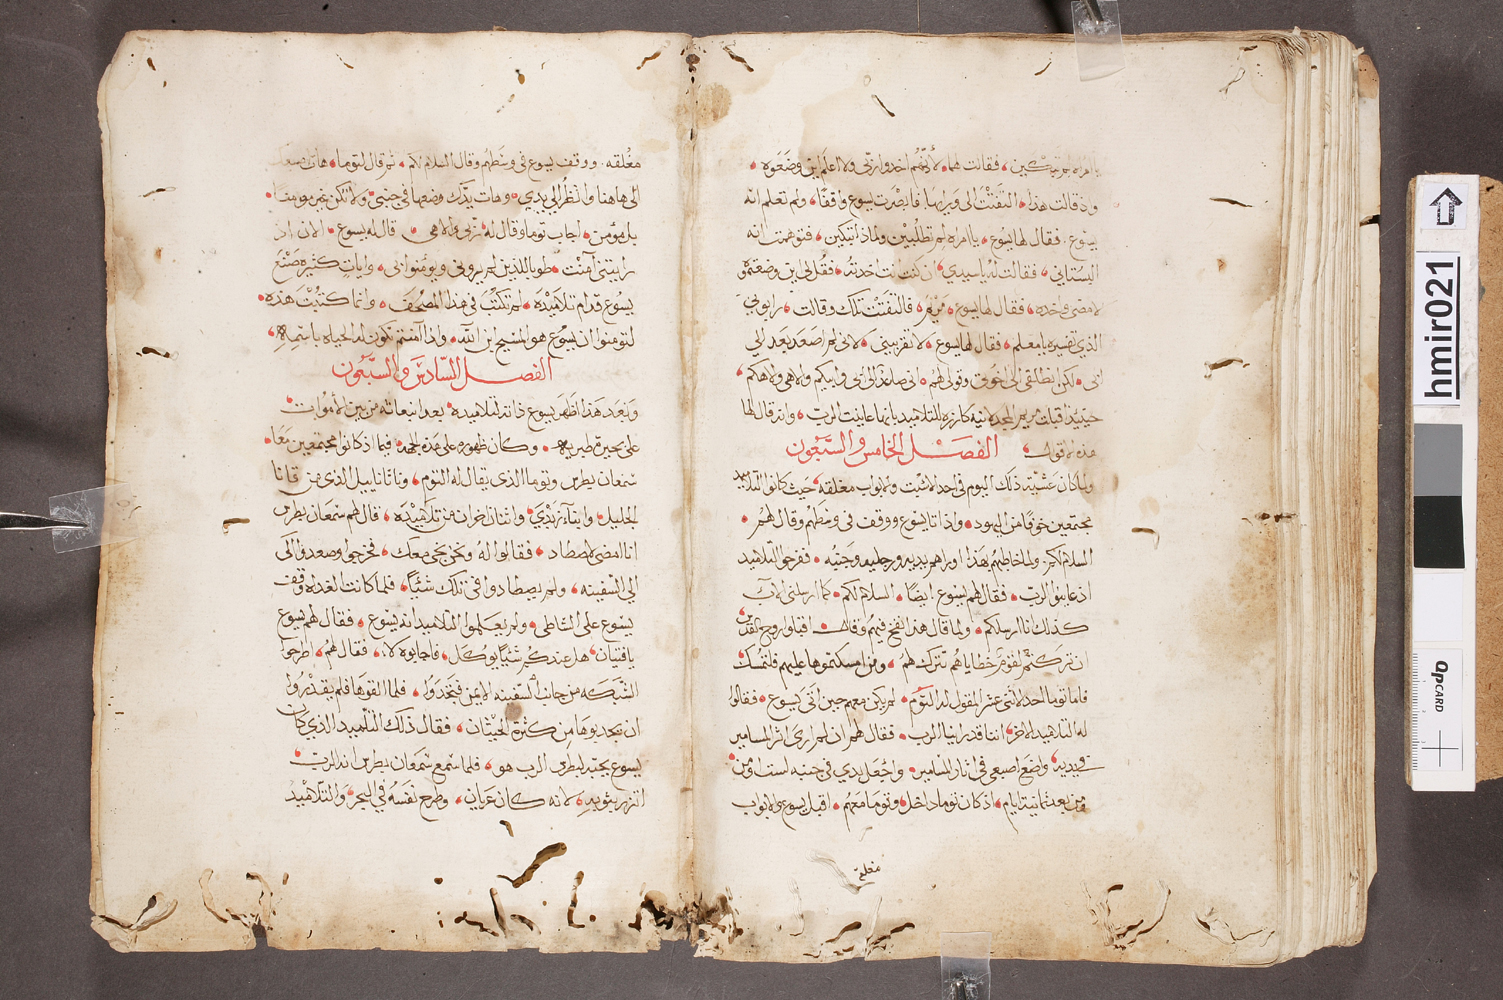 يا امراه لم تبكين، فقالت لهما، لأنهم اخدوا ربي ولا اعلم اين وضعوه
واذ قالت هذا، التفتت الى ورايها، فابصرت يسوع واقفًا، ولم تعلم انه
يسوع، فقال لها يسوع، يا امراه لم تطلبين ولماذا تبكين، فتوهمت انه
البستاني، فقالت له يا سيدي، ان كنت انت اخدته، فقل لي اين وضعته
لامضي واخده، فقال لها يسوع، مريم، فالتفتت تلك وقالت، رابوني
الذي تفسيره يا معلم، فقال لها يسوع، لا تقربيني، لاني لم اصعد بعد الي
ابي، لكن انطلقي الى اخوتي وقولي لهم، اني صاعد الى ابي وابيكم والاهي والاهكم
حينيذ اقبلت مريم المجدلانيه كارزه للتلاميد بانها عاينت الرب، وانه قال لها
هذه الاقوال
الفصــل الخامس والسبعون
ولما كان عشية ذلك اليوم في احد السبت والابواب مغلقه، حيث كانوا التلاميد
مجتمعين خوفًا من اليهود، واذ اتا يسوع ووقف في وسطهم وقال لهم
السلام لكم، ولما خاطبهم بهذا اوراهم يديه ورجليه وجنبه، ففرحوا التلاميد
اذ عاينوا الرب، فقال لهم يسوع ايضًا، السلام لكم، كما ارسلني الاب
كذلك انا ارسلكم، ولما قال هذا نفخ فيهم وقال، اقبلوا روح القدس
ان تركتم لقوم خطاياهم تترك لهم، ومن امسكتموها عليهم فلتمسك
فاما توما احد الاثني عشر المقول له التوم، لم يكن معهم حين اتى يسوع، فقالوا
له التلاميد الاخر، اننا قد راينا الرب، فقال لهم ان لم ارى اثر المسامير
في يديه، واضع اصبعي في اتار المسامير، واجعل يدي في جنبه لست اومن
ومن بعد تمانية ايام، اذ كان توما داخل وتوما معهم، اقبل يسوع والابواب
مغلقه
مغلقه، ووقف يسوع في وسطهم وقال السلام لكم، ثم قال لتوما، هات اصبعك
الى هاهنا وانظر الي يدي، وهات يدك وضعها في جنبي، ولا تكن غير مومنًا
بل مؤمن، اجاب توما وقال له، ربي والاهي، قال له يسوع، الان اذ
رايتني آمنت، طوبا للذين لم يروني ويومنوا بي، وايات كثيره صنع
يسوع قدام تلاميده، لم تكتب في هذا المصحف، وانما كتبت هذه
لتومنوا ان يسوع هو المسيح ابن الله، واذا آمنتم تكون لكم الحياه باسمه
الفصــل السادس والسبعون
وبعد هذا اظهر يسوع ذاته لتلاميده، بعد انبعاته من بين الأموات
على بحيرة طبريه، وكان ظهوره على هذه الجهه، فيما اذ كانوا مجتمعين معًا
سمعان بطرس وتوما الذي يقال له التوم، وناثاناييل الذي من قانا
الجليل، وابنا زبدي، واثنان اخران من تلاميده، قال لهم سمعان بطرس
انا امضي لاصطاد، فقالوا له ونحن نجي معك، فخرجوا وصعدوا الى
الي السفينه، ولم يصطادوا في تلك شئيًا، فلما كانت الغداه وقف
يسوع على الشاطي، ولم يعلموا التلاميد انه يسوع، فقال لهم يسوع
يا فتيان، هل عندكم شئيًا يوكل، فاجابوه لا، فقال لهم، اطرحوا
الشبكه من جانب السفينه الايمن فتجدوا، فلما القوها فلم يقدروا
ان يجدبوها من كثرة الحيتان، فقال ذلك التلميد الذي كان
يسوع يحبه لبطرس الرب هو، فلما سمع سمعان بطرس انه الرب
اتزر بثوبه، لانه كان عريان، وطرح نفسه في البحر، والتلاميد
hmir021
QP CARD